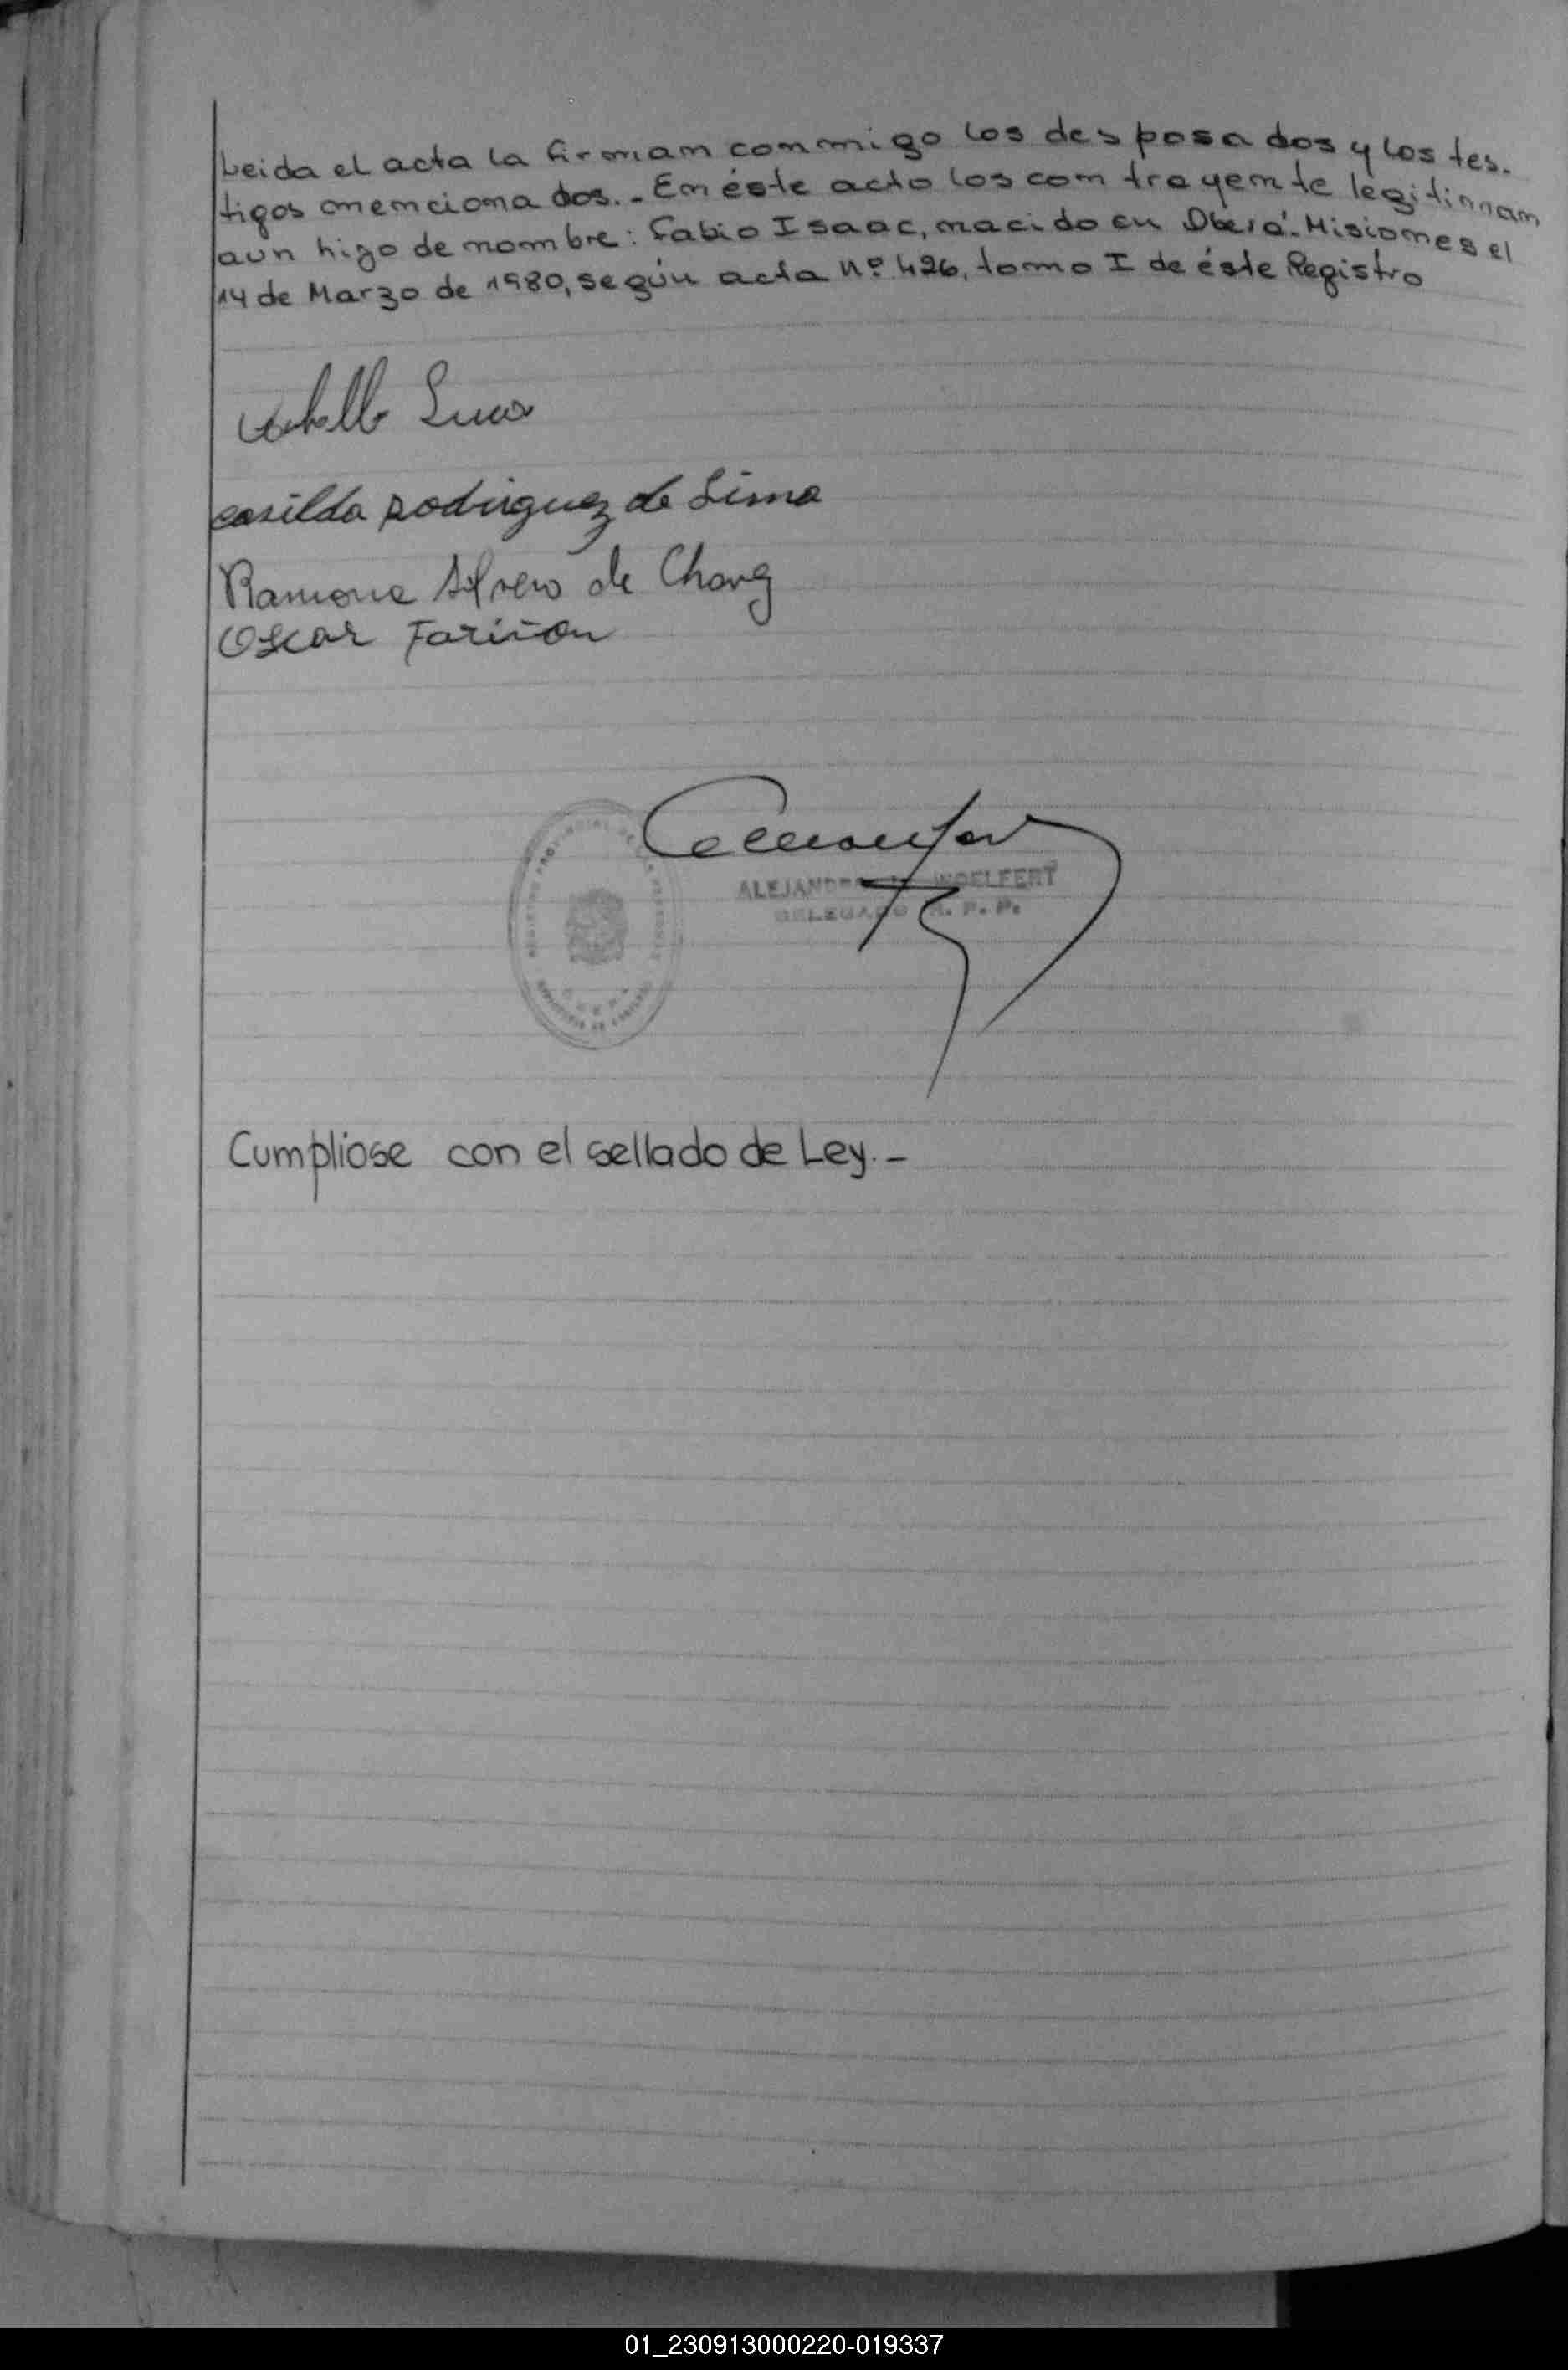 Leida el acta la firman conmigo los desposados y los tes-
tigos mencionados.- En éste acto los contrayente legitiman
aun hijo de nombre: Fabio Isaac, nacido en Oberá-Misiones el
14 de Marzo de 1980, según acta Nº 426, tomo I de éste Registro
casilda Rodriguez de Lima
Ramona de Chang
Oscar
ALEJANDRO WOELFERT
DELEGADO R. P. P.
REGISTRO PROVINCIAL DE LAS PERSONAS
Cumpliose con el sellado de Ley.-
01_230913000220-019337